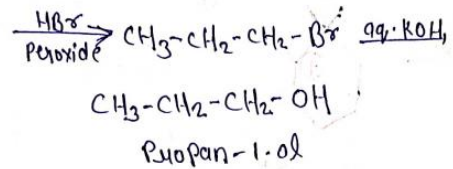 HBr
Peroxide → CH₃-CH₂-CH₂-Br aq. KOH,
CH₃-CH₂-CH₂-OH
Propan-1-ol